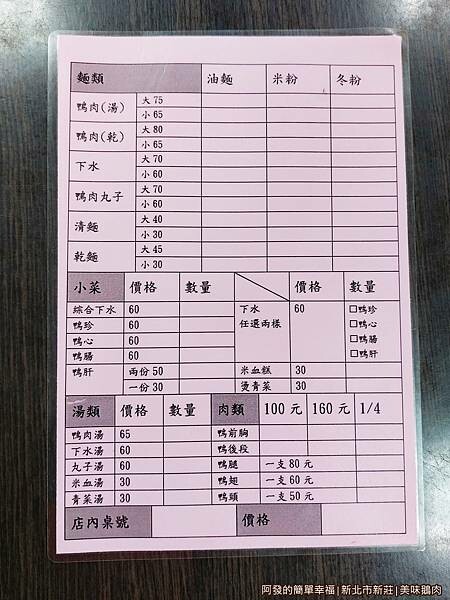 麵類 油麵 米粉 冬粉
鴨肉(湯) 大 75
小 65
鴨肉(乾) 大 80
小 65
下水 大 70
小 60
鴨肉丸子 大 70
小 60
清麵 大 40
小 30
乾麵 大 45
小 30
小菜 價格 數量 價格 數量
綜合下水 60 下水 60 □鴨珍
鴨珍 60 任選兩樣 □鴨心
鴨心 60 □鴨腸
鴨腸 60 □鴨肝
鴨肝 兩份 50 米血糕 30
一份 30 燙青菜 30
湯類 價格 數量 肉類 100 元 160 元 1/4
鴨肉湯 65 鴨前胸
下水湯 60 鴨後段
丸子湯 60 鴨腿 一支 80 元
米血湯 30 鴨翅 一支 60 元
青菜湯 30 鴨頭 一支 50 元
店內桌號 價格
阿發的簡單幸福|新北市新莊|美味鵝肉